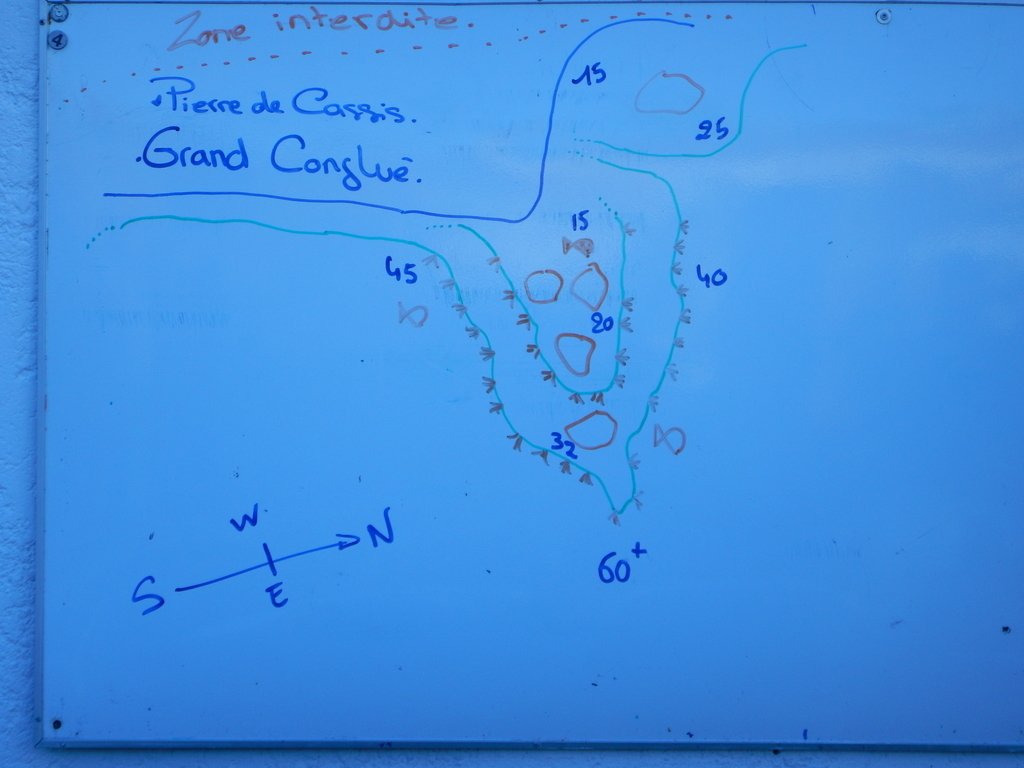 Zone interdite.
Pierre de Cassis.
Grand Conglué.
15
25
15
45
40
20
32
60+
W.
N
S
E